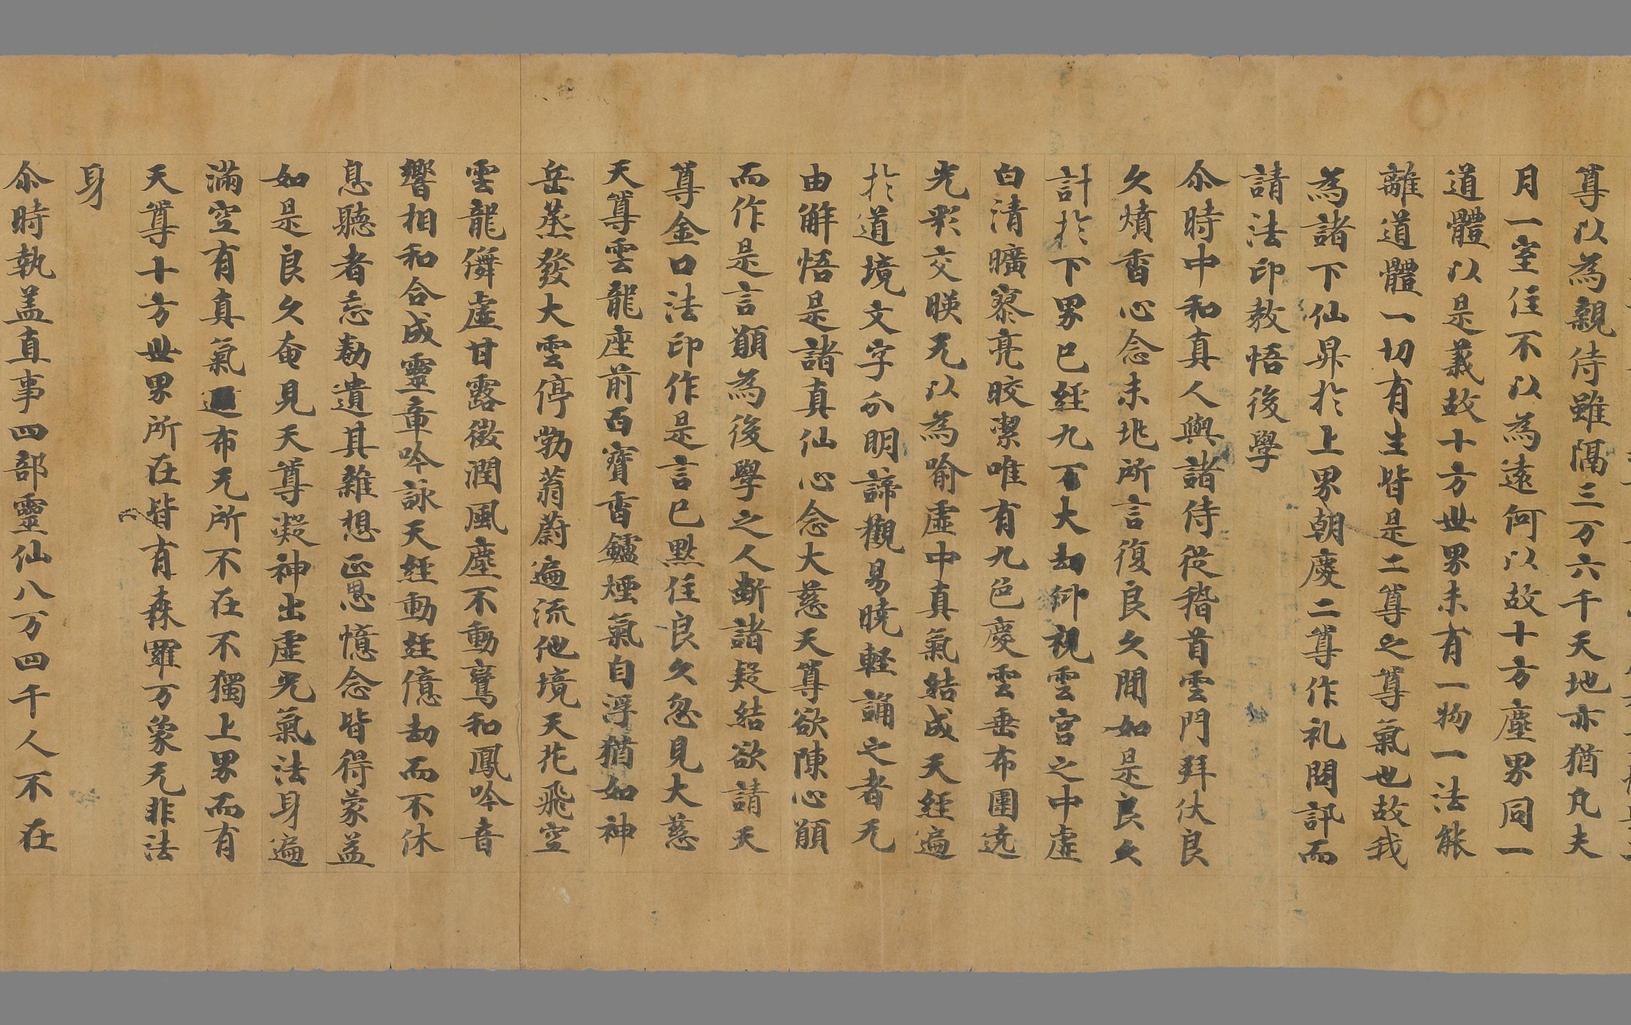 尊以為親侍雖隔三万六千天地亦猶凡夫
月一室住不以為遠何以故十方塵界同一
道體以是義故十方世界未有一物一法能
離道體一切有生皆是二尊之尊氣也故我
為諸下仙昇於上界朝慶二尊作礼問訊而
請法印教悟後學
尒時中和真人與諸侍從稽首雲門拜伏良
久燌香心念未兆所言復良久間如是良久
計於下界已經九百大劫仰視雲宮之中虛
白清曠寥亮晈潔唯有九色慶雲垂布圍遶
光彩交暎无以為喻虛中真氣結成天經遍
於道境文字分明諦觀易曉輕誦之者无
由解悟是諸真仙心念大慈天尊欲陳心願
而作是言願為後學之人斷諸疑結欲請天
尊金口法印作是言已黙住良久忽見大慈
天尊雲龍座前百寶香鑪煙氣自浮猶如神
岳蒸發大雲停勃蓊蔚遍流他境天花飛空
雲龍儛虛甘露微潤風塵不動鸞和鳳吟音
響相和合成靈章吟詠天經動經億劫而不休
息聽者忘勌遺其雜想正思憶念皆得蒙益
如是良久奄見天尊凝神出虛光氣法身遍
滿空有真氣遍布无所不在不獨上界而有
天尊十方世界所在皆有森羅万象无非法
身
尒時執盖直事四部靈仙八万四千人不在